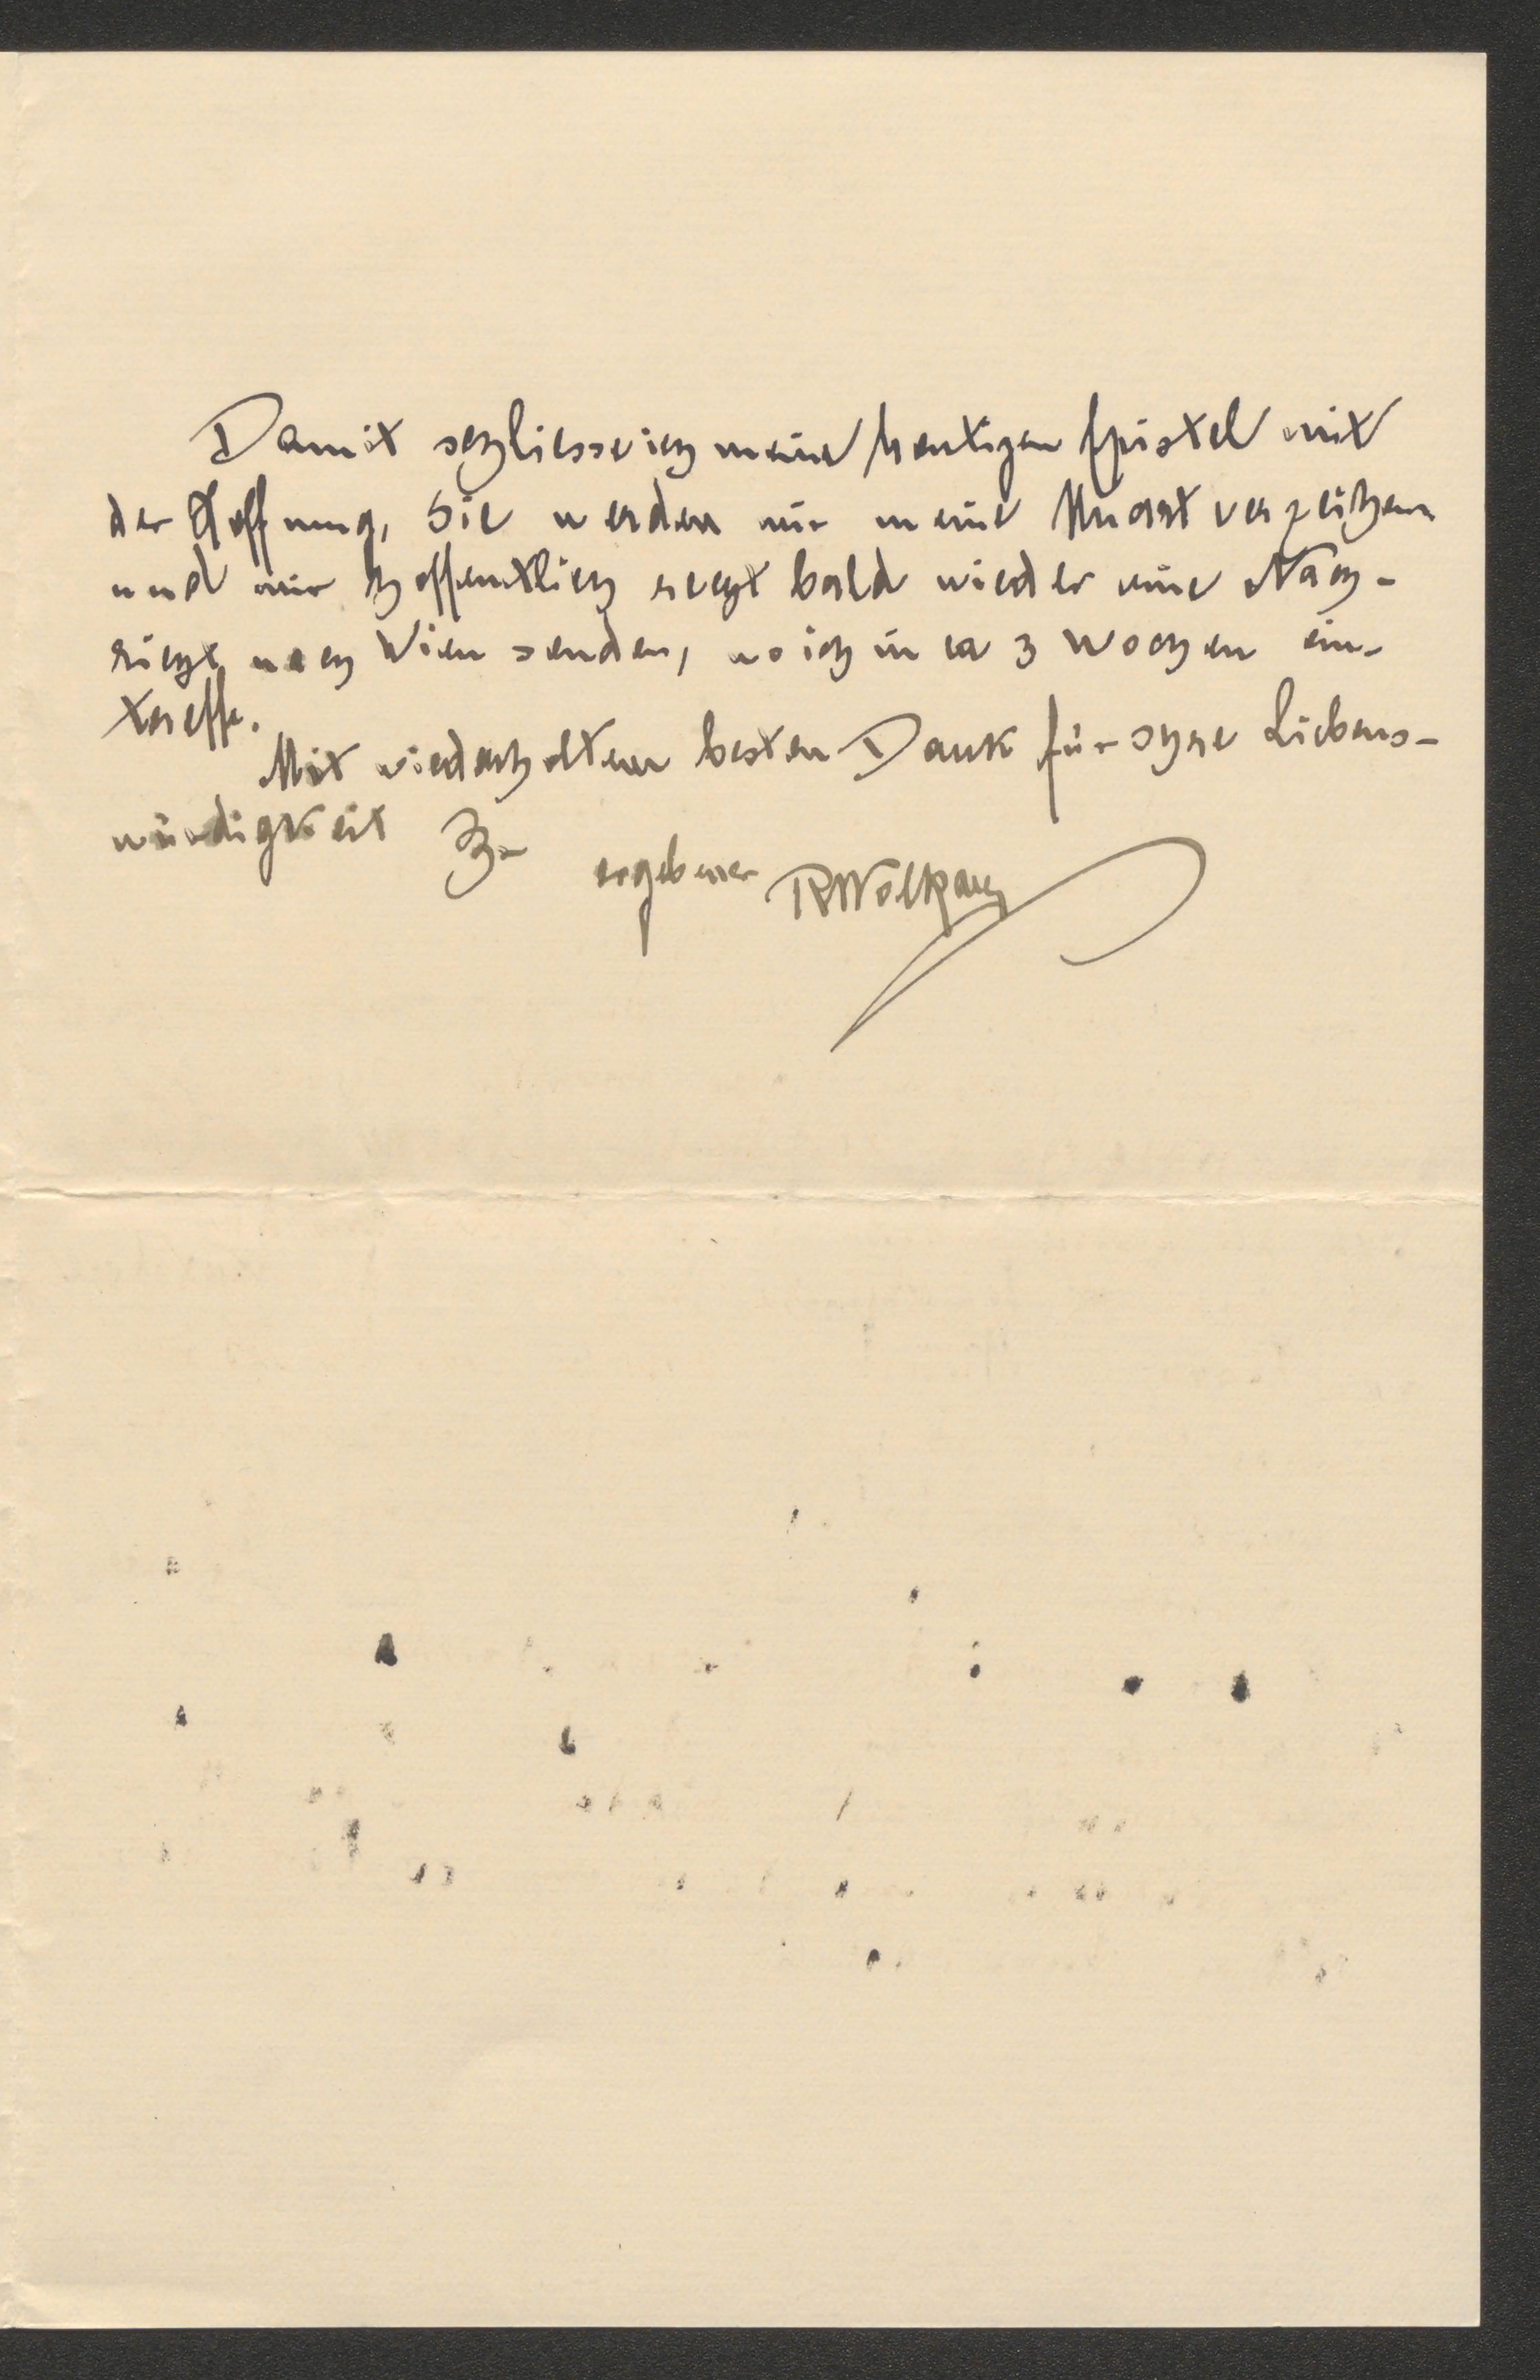 Damit schliesse ich meine heutigen Epistel mit
der Hoffnung, Sie werden mir meine verzeihen
und mir hoffentlich recht bald wieder eine Nach-
richt nach Wien senden, wo ich in ca 3 Wochen ein-
treffe.
Mit wiederholtem besten Dank für Ihre Liebens-
würdigkeit Ihr ergebener RWolkan